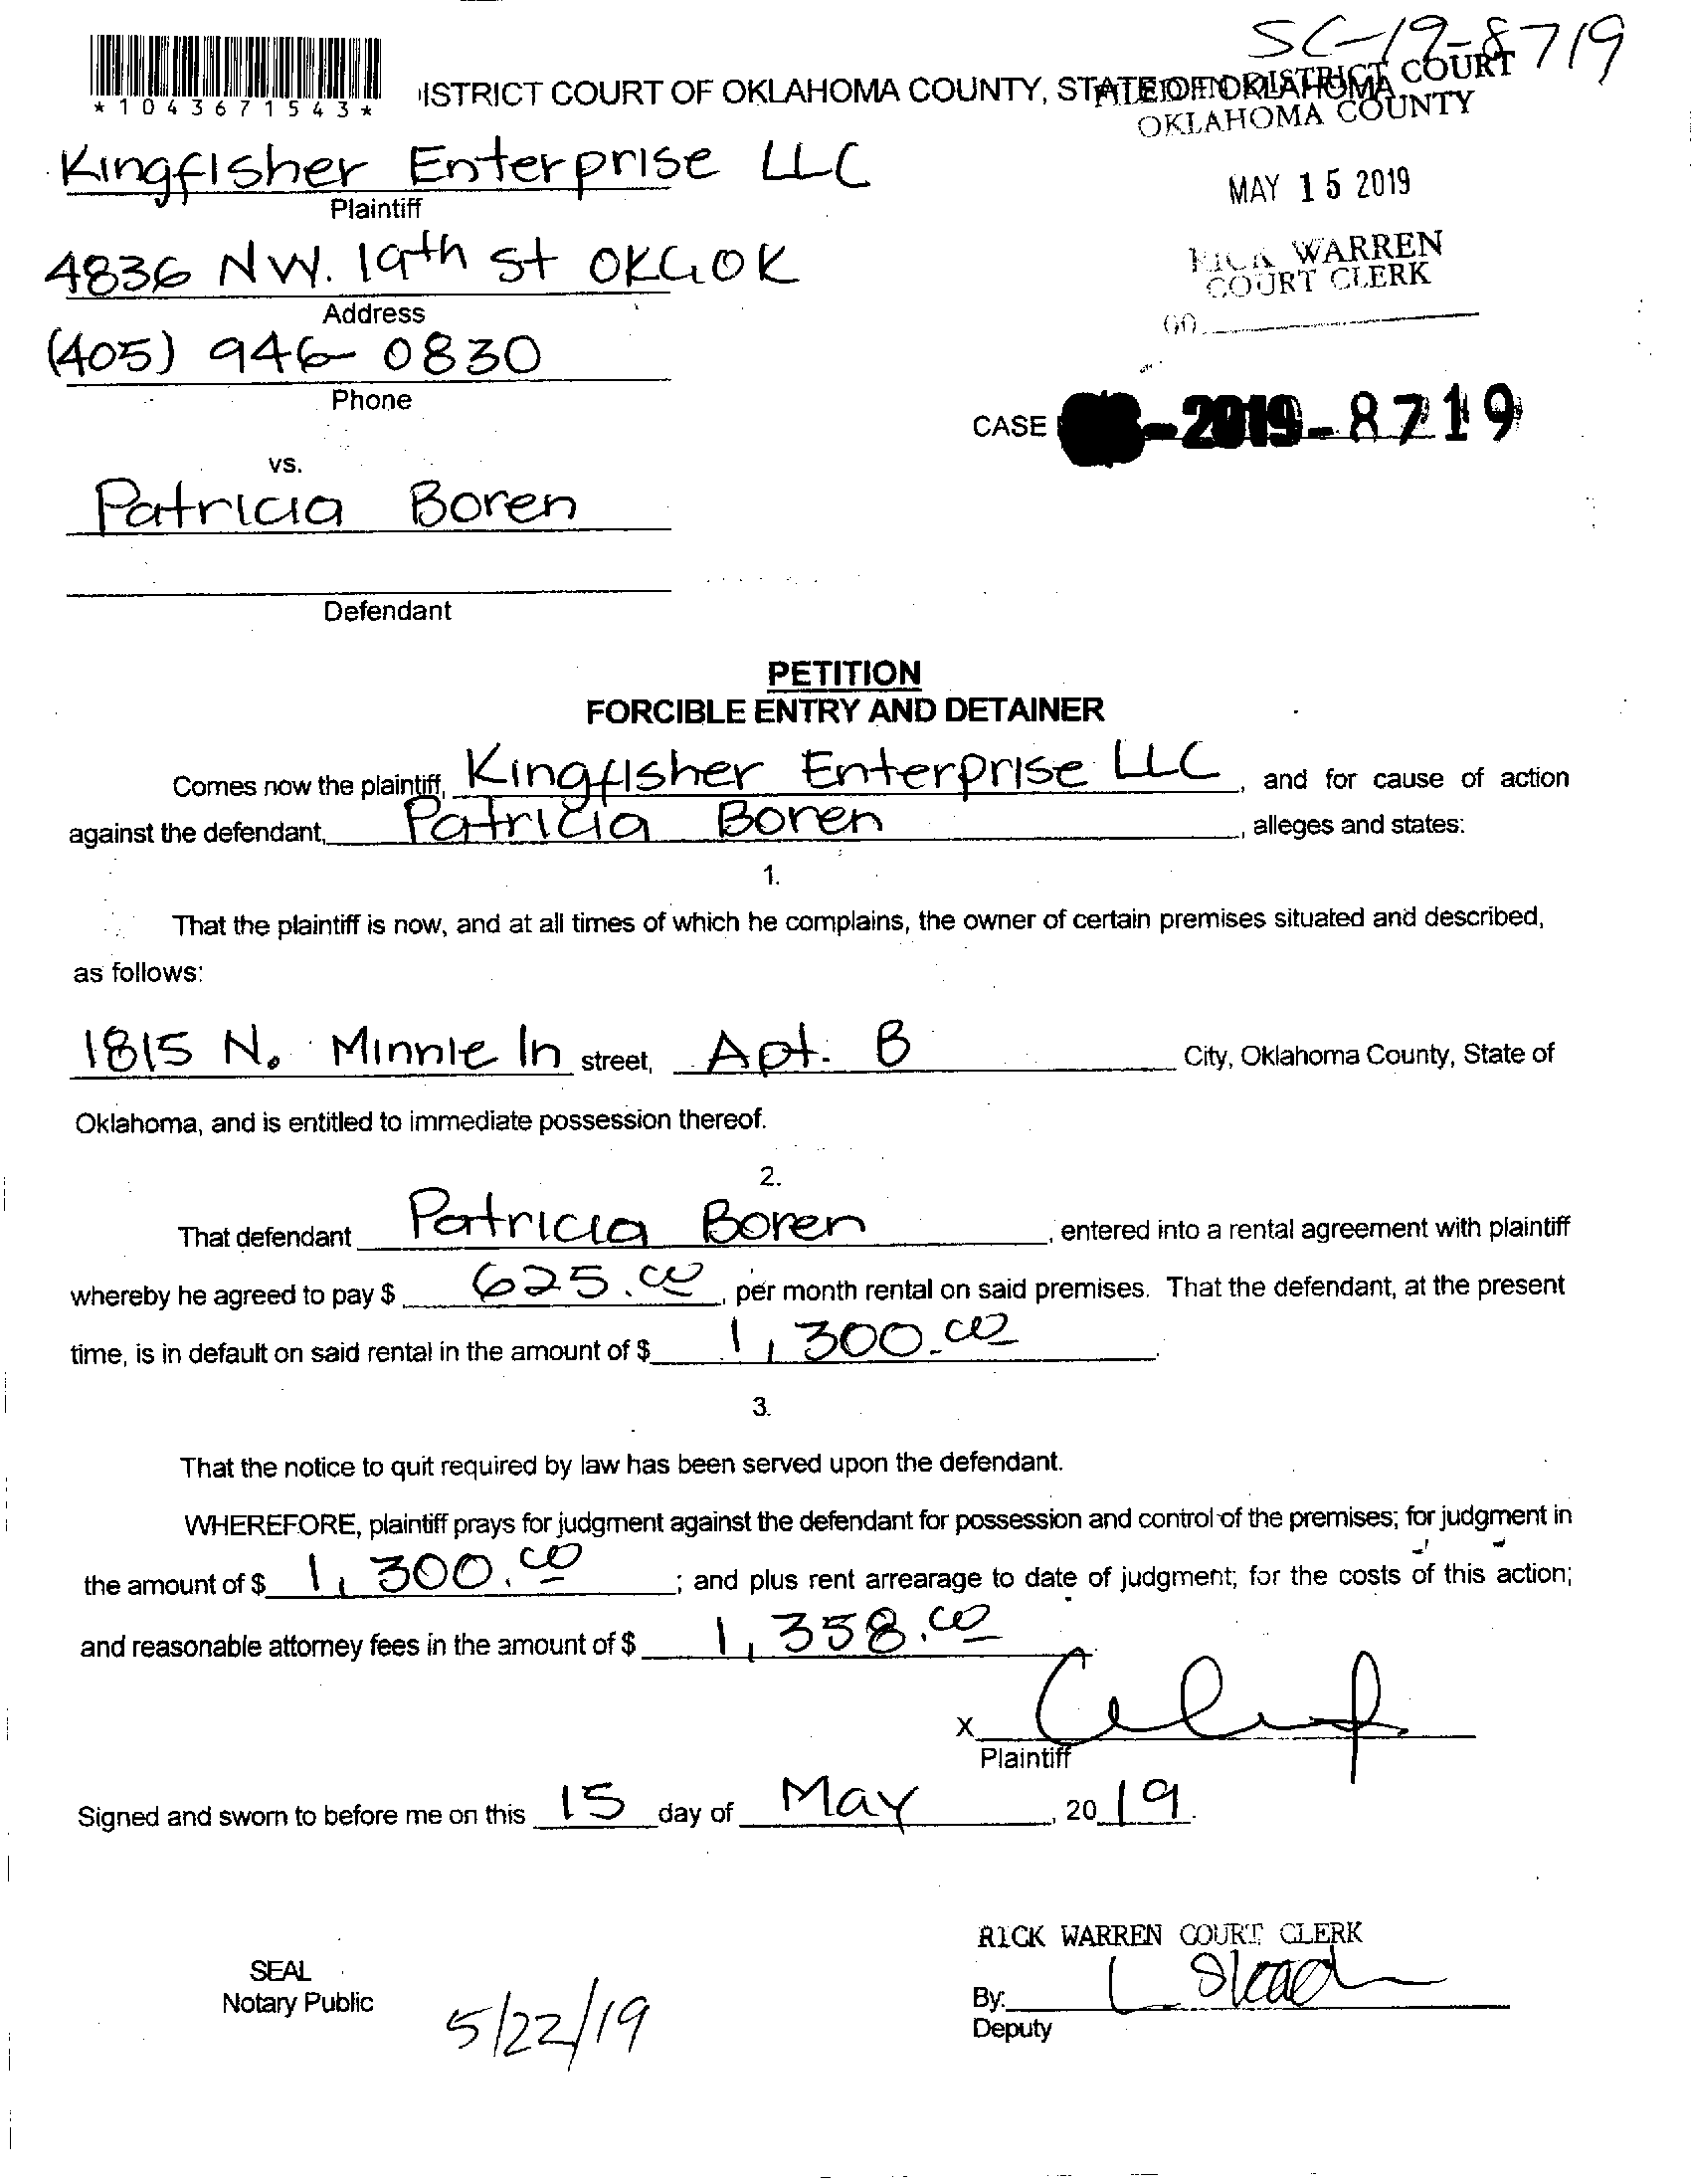 SC-19-8719
*1043671543*
ISTRICT COURT OF OKLAHOMA COUNTY, STATE OF OKLAHOMA
FILED IN DISTRICT COURT
OKLAHOMA COUNTY
Kingfisher Enterprise LLC
Plaintiff
MAY 15 2019
4836 NW. 19th St OKC OK
Address
RICK WARREN
COURT CLERK
(405) 946-0830
Phone
CASE -2019-8719
vs.
Patricia Boren
Defendant
PETITION
FORCIBLE ENTRY AND DETAINER
Comes now the plaintiff, Kingfisher Enterprise LLC, and for cause of action
against the defendant, Patricia Boren, alleges and states:
1.
That the plaintiff is now, and at all times of which he complains, the owner of certain premises situated and described,
as follows:
1815 N. Minnie ln street, Apt. B City, Oklahoma County, State of
Oklahoma, and is entitled to immediate possession thereof.
2.
That defendant Patricia Boren, entered into a rental agreement with plaintiff
whereby he agreed to pay $ 625.00, per month rental on said premises. That the defendant, at the present
time, is in default on said rental in the amount of $ 1,300.00.
3.
That the notice to quit required by law has been served upon the defendant.
WHEREFORE, plaintiff prays for judgment against the defendant for possession and control of the premises; for judgment in
the amount of $ 1,300.00; and plus rent arrearage to date of judgment; for the costs of this action;
and reasonable attorney fees in the amount of $ 1,358.00
X
Plaintiff
Signed and sworn to before me on this 15 day of May, 2019.
RICK WARREN COURT CLERK
SEAL
Notary Public
5/22/19
By: L Slead
Deputy